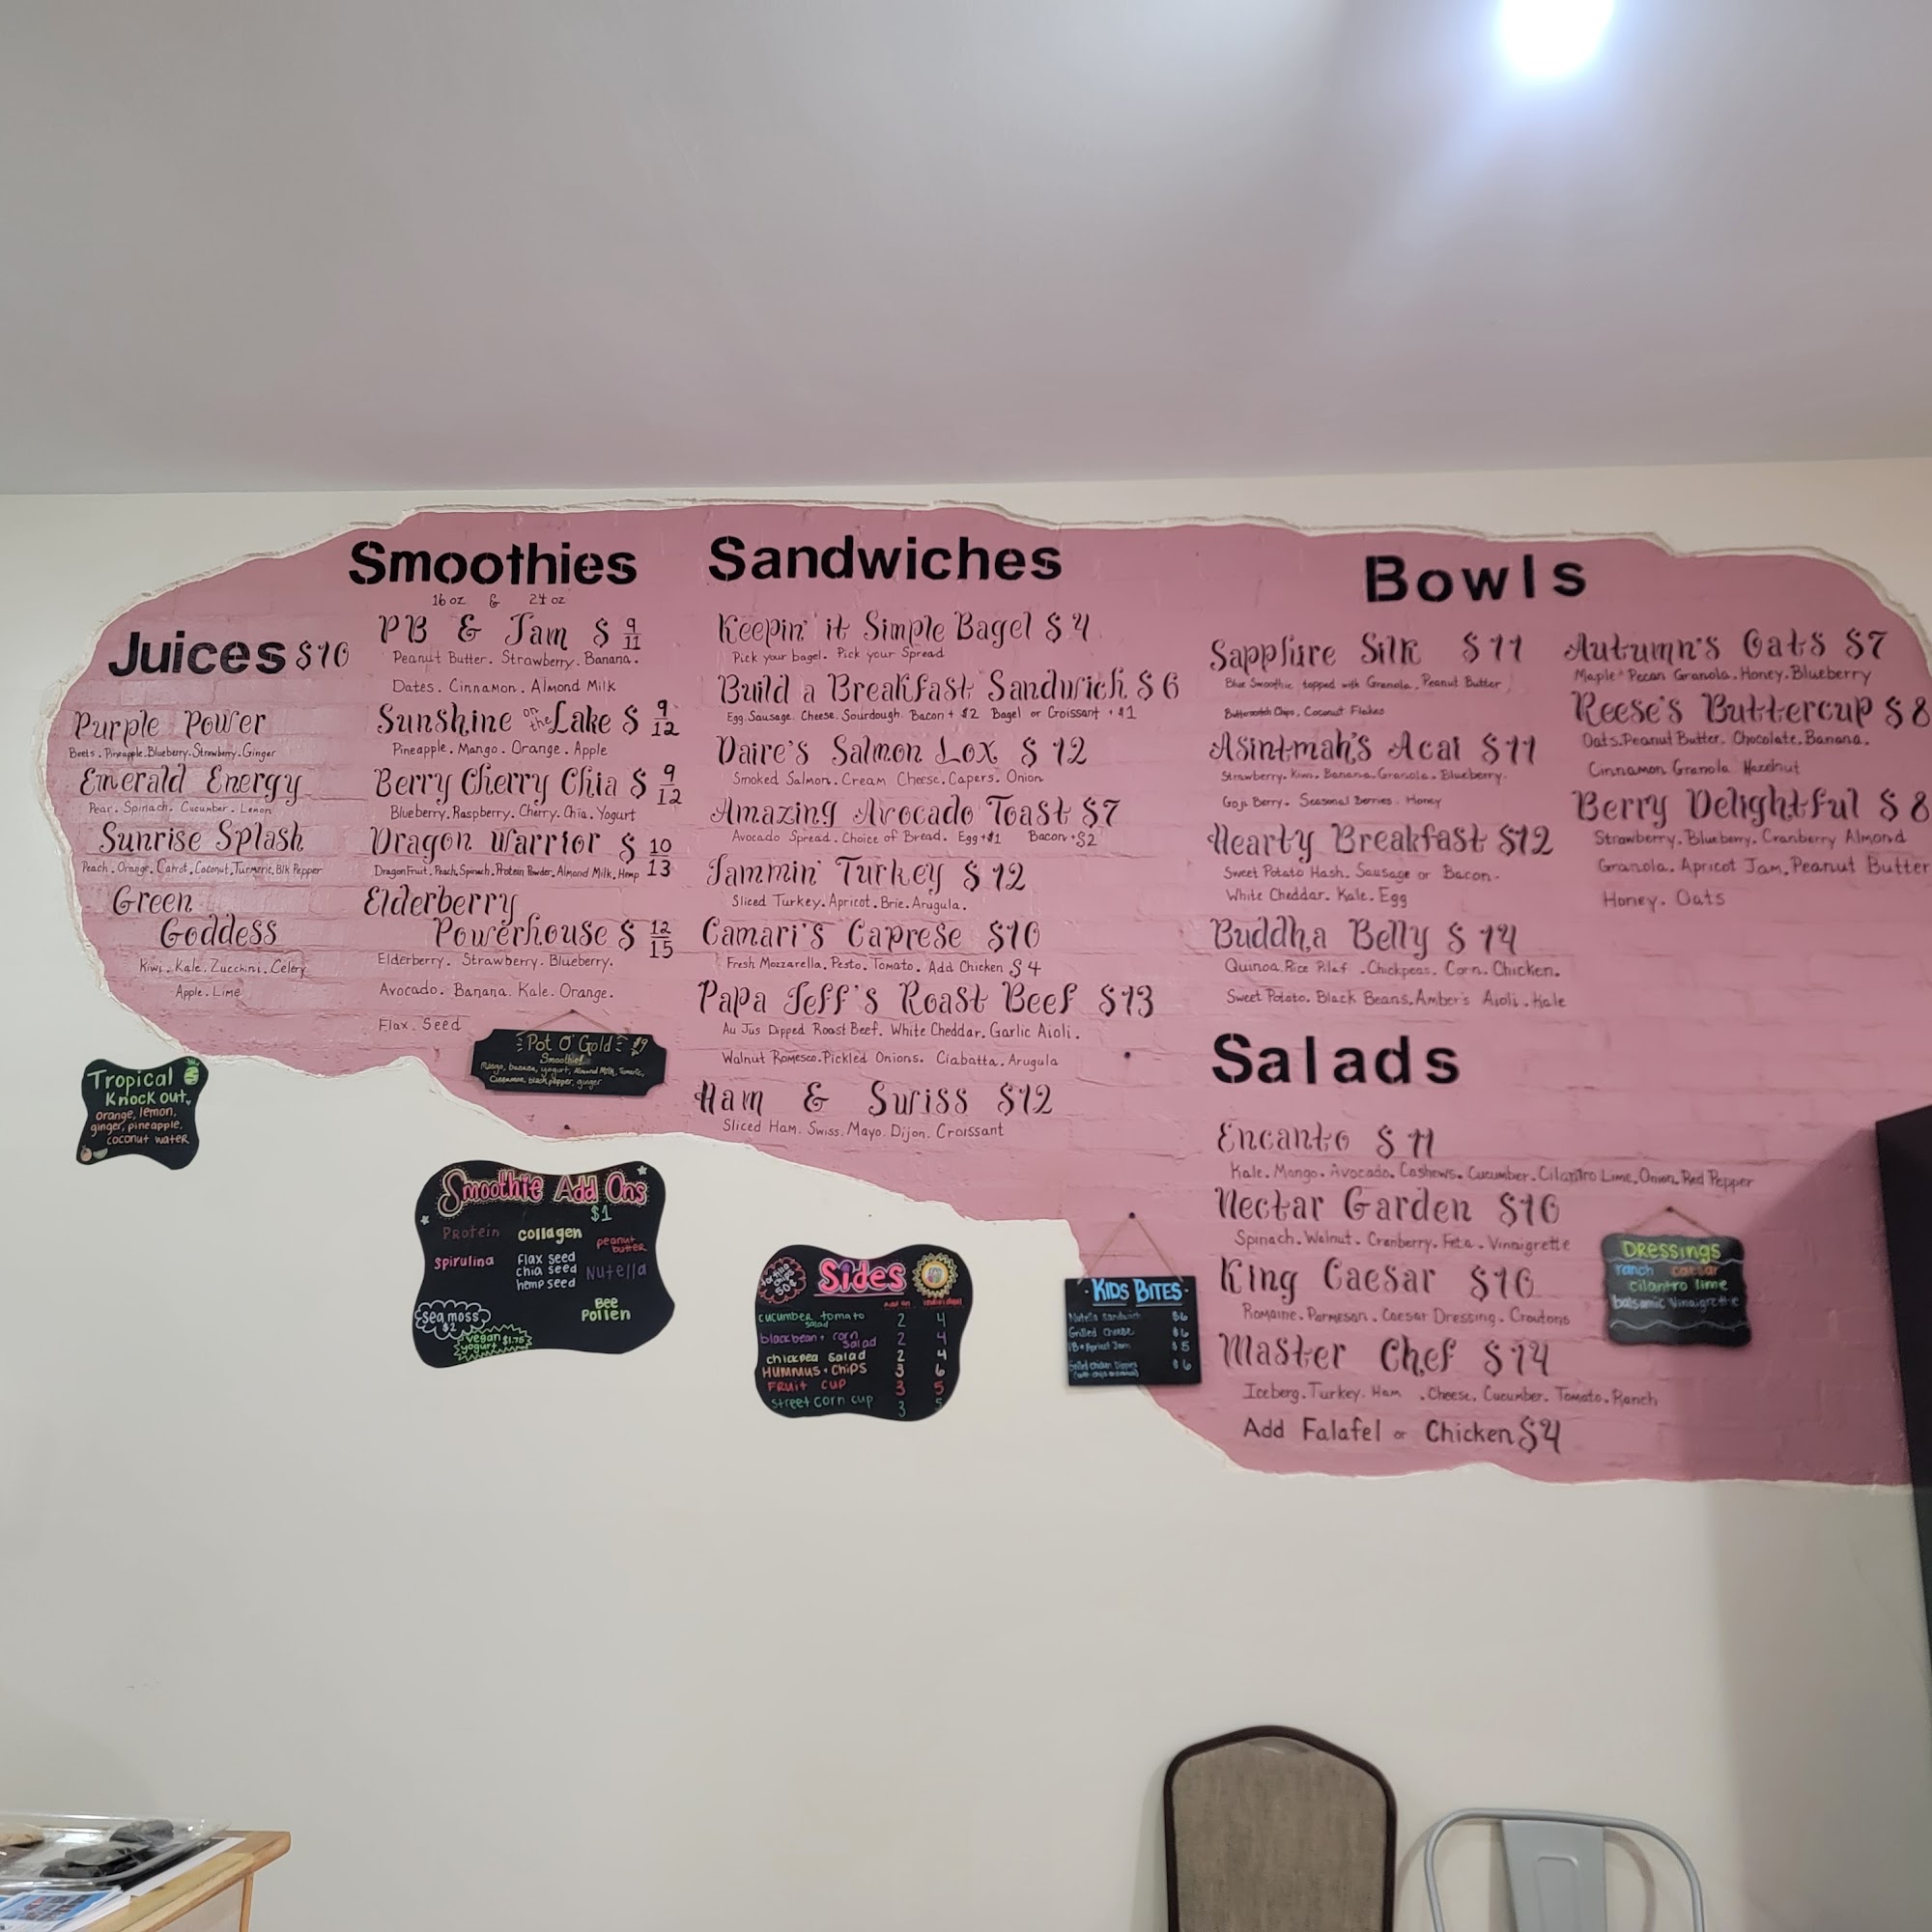 Juices $10
Purple Power
Beets. Pineapple. Blueberry. Strawberry. Ginger
Emerald Energy
Pear. Spinach. Cucumber. Lemon
Sunrise Splash
Peach. Orange. Carrot. Coconut. Turmeric. Blk Pepper
Green
Goddess
Kiwi. Kale. Zucchini. Celery
Apple. Lime
Tropical
Knock out
orange, lemon,
ginger, pineapple,
coconut water
Smoothies
16 oz & 24 oz
PB & Jam $ 9/11
Peanut Butter. Strawberry. Banana.
Dates. Cinnamon. Almond Milk
Sunshine on the Lake $ 9/12
Pineapple. Mango. Orange. Apple
Berry Cherry Chia $ 9/12
Blueberry. Raspberry. Cherry. Chia. Yogurt
Dragon Warrior $ 10/13
Dragon Fruit. Peach. Spinach. Protein Powder. Almond Milk. Hemp
Elderberry
Powerhouse $ 12/15
Elderberry. Strawberry. Blueberry.
Avocado. Banana. Kale. Orange.
Flax. Seed
Pot O' Gold $9
Smoothie
Mango, banana, yogurt, Almond Milk, Tumeric,
Cinnamon, black pepper, ginger
Smoothie Add Ons
$1
Protein collagen peanut butter
spirulina flax seed
chia seed Nutella
hemp seed
Bee
Pollen
sea moss
$2
vegan $1.75
yogurt
Sandwiches
Keepin' it Simple Bagel $ 4
Pick your bagel. Pick your Spread
Build a Breakfast Sandwich $ 6
Egg. Sausage. Cheese. Sourdough. Bacon + $2 Bagel or Croissant + $1
Daire's Salmon Lox $ 12
Smoked Salmon. Cream Cheese. Capers. Onion
Amazing Avocado Toast $7
Avocado Spread. Choice of Bread. Egg +$1 Bacon +$2
Jammin' Turkey $ 12
Sliced Turkey. Apricot. Brie. Arugula.
Camari's Caprese $10
Fresh Mozzarella. Pesto. Tomato. Add Chicken $ 4
Papa Jeff's Roast Beef $13
Au Jus Dipped Roast Beef. White Cheddar. Garlic Aioli.
Walnut Romesco. Pickled Onions. Ciabatta. Arugula
Ham & Swiss $12
Sliced Ham. Swiss. Mayo. Dijon. Croissant
Sides
tortilla
chips
50¢
add on individual
cucumber tomato salad 2 4
black bean + corn salad 2 4
chickpea salad 2 4
Hummus + chips 3 6
Fruit cup 3 5
street corn cup 3 5
Kids Bites
Nutella sandwich $6
Grilled Cheese $6
PB + Apricot Jam $5
$6
Bowls
Sapphire Silk $ 11
Blue Smoothie topped with Granola. Peanut Butter
Butterscotch Chips. Coconut Flakes
Asintmah's Acai $11
Strawberry. Kiwi. Banana. Granola. Blueberry.
Goji Berry. Seasonal Berries. Honey
Hearty Breakfast $12
Sweet Potato Hash. Sausage or Bacon.
White Cheddar. Kale. Egg
Buddha Belly $ 14
Quinoa. Rice Pilaf. Chickpeas. Corn. Chicken.
Sweet Potato. Black Beans. Amber's Aioli. Kale
Autumn's Oats $7
Maple Pecan Granola. Honey. Blueberry
Reese's Buttercup $ 8
Oats. Peanut Butter. Chocolate. Banana.
Cinnamon Granola Hazelnut
Berry Delightful $ 8
Strawberry. Blueberry. Cranberry Almond
Granola. Apricot Jam. Peanut Butter
Honey. Oats
Salads
Encanto $ 11
Kale. Mango. Avocado. Cashews. Cucumber. Cilantro Lime. Onion. Red Pepper
Nectar Garden $10
Spinach. Walnut. Cranberry. Feta. Vinnaigrette
King Caesar $10
Romaine. Parmesan. Caesar Dressing. Croutons
Master Chef $14
Iceberg. Turkey. Ham. Cheese. Cucumber. Tomato. Ranch
Add Falafel or Chicken $4
Dressings
ranch caesar
cilantro lime
balsamic Vinaigrette